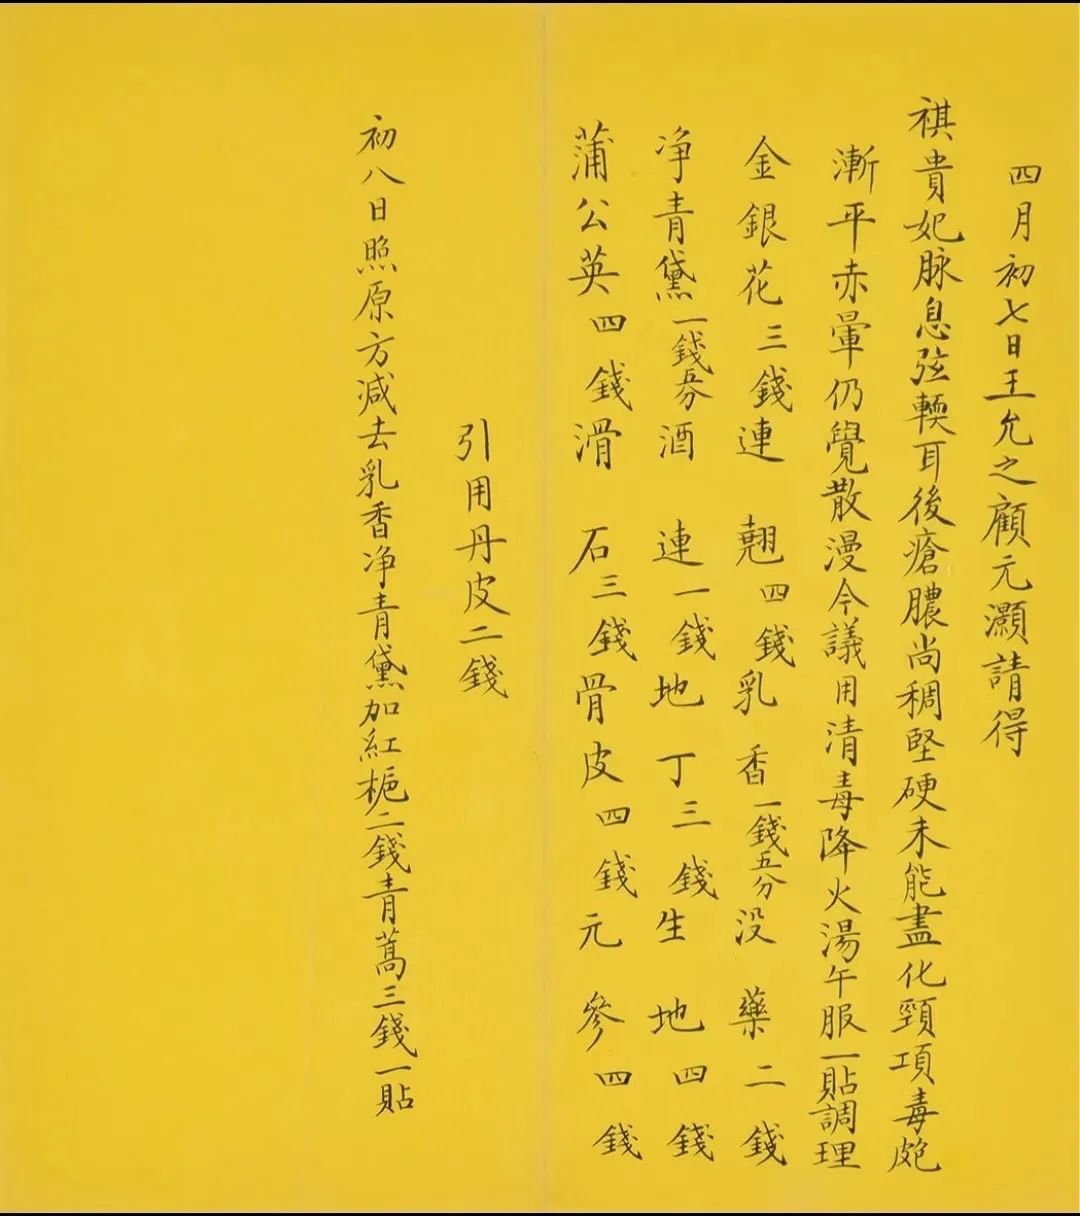 四月初七日王允之顧元灝請得
祺貴妃脉息弦輭耳後瘡膿尚稠堅硬未能盡化頸項毒皰
漸平赤暈仍覺散漫今議用清毒降火湯午服一貼調理
金銀花三錢連翹四錢乳香一錢五分没藥二錢
净青黛一錢五分酒連一錢地丁三錢生地四錢
蒲公英四錢滑石三錢骨皮四錢元參四錢
引用丹皮二錢
初八日照原方減去乳香净青黛加紅梔二錢青蒿三錢一貼